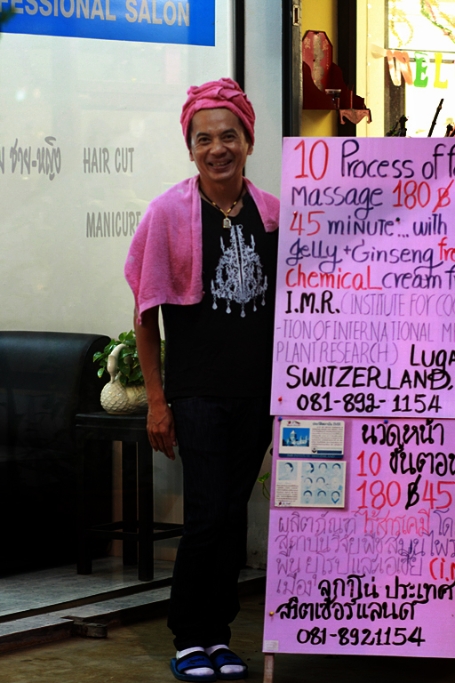 FESSIONAL SALON
ชาย-หญิง HAIR CUT
MANICURE
WEL
10 Process of
Massage 180 ฿
45 minute... with
Jelly + Ginseng fre
chemical cream f
I.M.R. (INSTITUTE FOR CO
-TION OF INTERNATIONAL M
PLANT RESEARCH) LUGA
SWITZERLAND.
081-892-1154
นวดหน้า
10 ขั้นตอ
180 ฿ 45
ผลิตภัณฑ์ ไร้สารเคมี โด
สถาบันวิจัยพืชสมุนไพร
ยุโรปและเอเชีย (I.M
เมือง ลูกาโน่ ประเทศ
สวิตเซอร์แลนด์
081-8921154